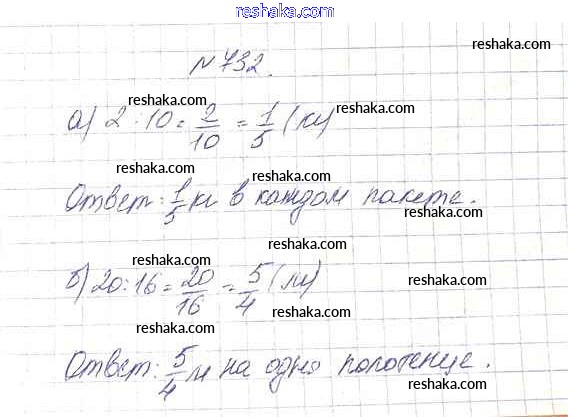 www.reshaka.com
reshaka.com
№ 732.
reshaka.com
reshaka.com
а) 2 : 10 = 2/10 = 1/5 (кг)
reshaka.com
reshaka.com
reshaka.com
Ответ: 1/5 кг в каждом пакете.
reshaka.com
reshaka.com
reshaka.com
б) 20 : 16 = 20/16 = 5/4 (м)
reshaka.com
reshaka.com
reshaka.com
Ответ: 5/4 м на одно полотенце.
reshaka.com
reshaka.com